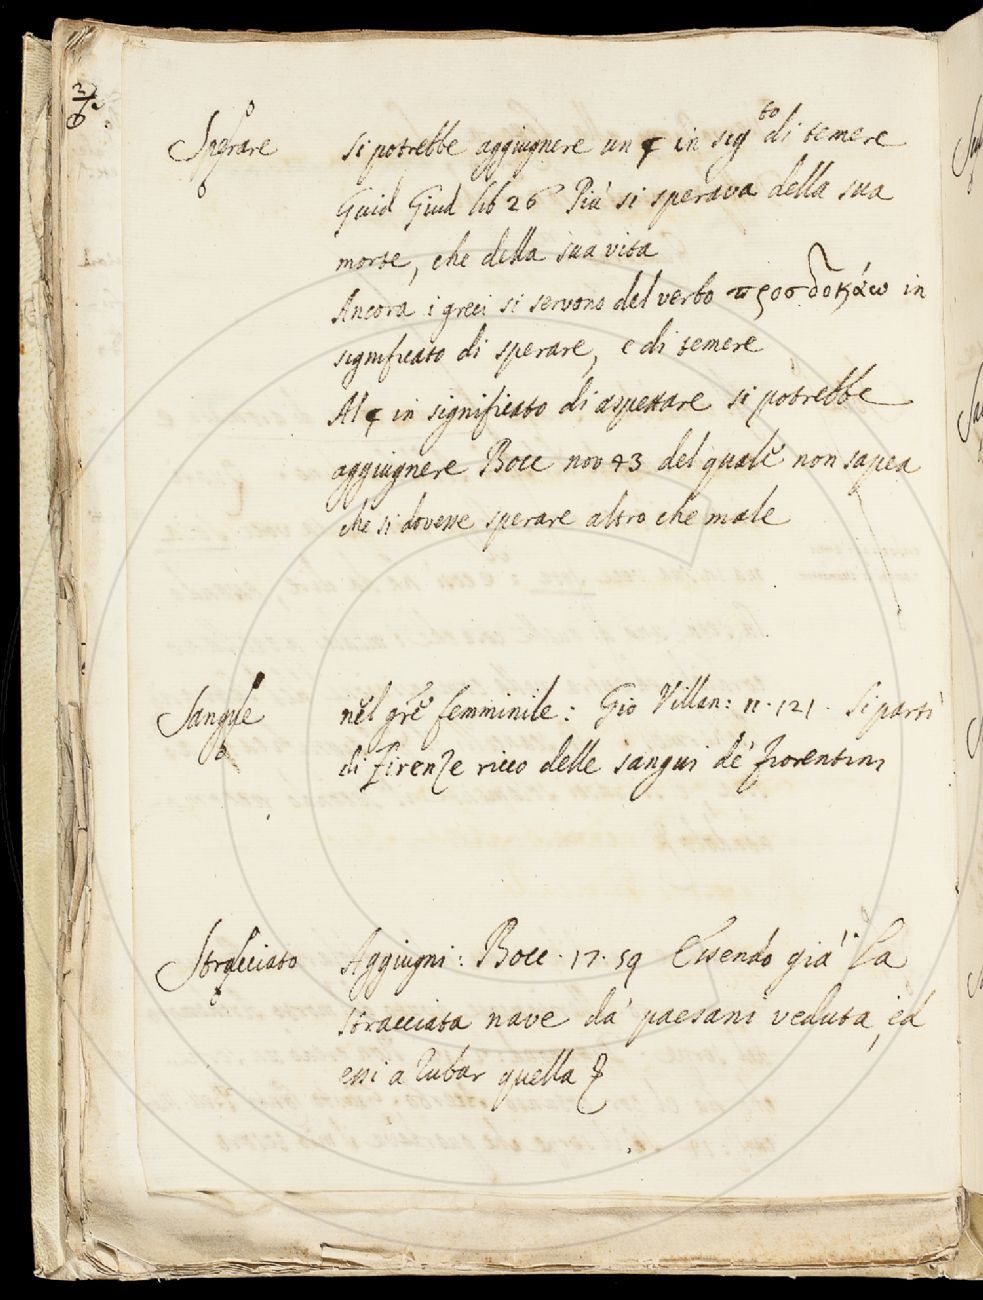 Sperare si potrebbe aggiugnere un ꞔ in sig.to di temere
Guid Giud lib 26 Più si sperava della sua
morte, che della sua vita
Ancora i greci si servono del verbo προσδοκάω in
significato di sperare, e di temere
Al ꞔ in significato di aspettare si potrebbe
aggiugnere Bocc nov 43 del quale non sapea
che si dovesse sperare altro che male
Sangue nel gre femminile: Gio Villan: 11·121· Si partì
di Firenze ricco delle sangui de' fiorentini
Stracciato Aggiugni: Bocc·17·59 Essendo già la
stracciata nave da' paesani veduta, ed
essi a rubar quella